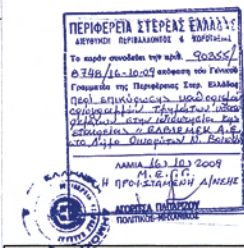 ΠΕΡΙΦΕΡΕΙΑ ΣΤΕΡΕΑΣ ΕΛΛΑΔΟΣ
ΔΙΕΥΘΥΝΣΗ ΠΕΡΙΒΑΛΛΟΝΤΟΣ & ΧΩΡΟΤΑΞΙΑΣ
Το παρόν συνοδεύει την αριθ. 90355/
8748/16-10-09 απόφαση του Γενικού
Γραμματέα της Περιφέρειας Στερ. Ελλάδος
περί επικύρωσης καθορισμού
οριογραμμών τμημάτων
ρεμάτων στην ιδιοκτησία της
εταιρείας
στο Δήμο Οινοφύτων Ν. Βοιωτίας
ΛΑΜΙΑ 16/10/2009
Μ.Ε.Γ.Γ.
Η ΠΡΟΪΣΤΑΜΕΝΗ Δ/ΝΣΗΣ
ΠΟΛΙΤΙΚΟΣ ΜΗΧΑΝΙΚΟΣ